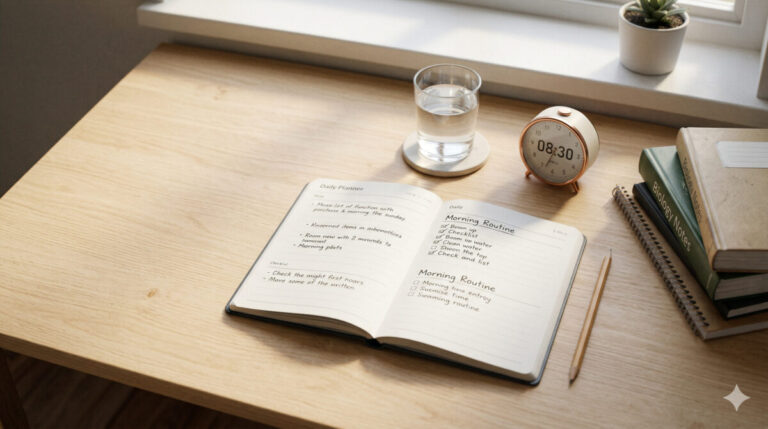 Daily Planner
• Music list of function with
purchase & warning the sunday
• Knopered items in
• Room new with 2 to
• Morning plats
• Check the might first hours
• Mane some of the written
Daily
Morning Routine
Boom up
Checklist
Boom up water
Clean water
Shoon the top
Check and list
Morning Routine
Morning time entroy
Sucmise time
Swmming routine
08:30
Biology Notes